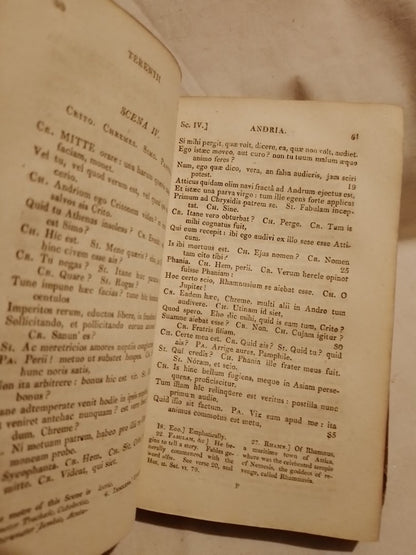 TERENTII
SCENA IV.
CRITO. CHREMES. SIMO.
CR. MITTE orare: una harum quævis
faciam, monet.
Vel tu, vel quod verum est, vel
cerio.
CH. Andrium ego Critonem video?
salvos sis Crito.
Quid tu Athenas insolens? CR.
est Simo?
CH. Hic est. SI. Mene quæris?
CR. Tu negas? SI. Itane huc
CR. Quare? SI. Rogas?
Tune impune hæc facias? tune hic
centulos
Imperitos rerum, eductos libere, in
Sollicitando, et pollicitando eorum
CR. Sanun' es?
SI. Ac meretricios amores nuptiis
PA. Perii! metuo ut substet hospes. CH.
hunc noris satis,
ita arbitrere: bonus hic est vir. SI.
adtemperate venit hodie in
veniret antehac nunquam? est vero
dum, Chreme?
Ni metuam patrem, habeo pro illa
moneam probe.
Sycophanta. CR. Hem. CH. Sic, Crito,
CR. Videat, qui siet.
Sc. IV.] ANDRIA. 61
Si mihi pergit, quæ volt, dicere, ea, quæ non volt, audiet.
Ego istæc moveo, aut curo? non tu tuum malum æquo
animo feres?
Nam, ego quæ dico, vera, an falsa audieris, jam sciri
potest. 19
Atticus quidam olim navi fractâ ad Andrum ejectus est,
Et istæc una parva virgo: tum ille egens forte applicat
Primum ad Chrysidis patrem se. SI. Fabulam incœp-
tat. CH. Sine.
CR. Itane vero obturbat? CH. Perge. CR. Tam is
mihi cognatus fuit,
Qui eum recepit: ibi ego audivi ex illo sese esse Atti-
cum.
Is ibi mortuus est. CH. Ejus nomen? CR. Nomen
tam cito tibi? 25
Phania. CH. Hem, perii. CR. Verum hercle opinor
fuisse Phaniam:
Hoc certo scio, Rhamnusium se aiebat esse. CH. O
Jupiter!
CR. Eadem hæc, Chreme, multi alii in Andro tum
audivere. CH. Utinam id siet,
Quod spero. Eho dic mihi, quid is eam tum, Crito?
Suamne aiebat esse? CR. Non. CH. Cujam igitur?
CR. Fratris filiam. 30
CH. Certe mea est. CR. Quid ais? SI. Quid tu? quid
ais? PA. Arrige aures, Pamphile.
SI. Qui credis? CH. Phania ille frater meus fuit.
SI. Nôram, et scio.
CH. Is hinc bellum fugiens, meque in Asiam perse-
quens, proficiscitur.
Tum illam hîc relinquere est veritus: postilla nunc
primum audio,
Quid illo sit factum. PA. Vix sum apud me: ita
animus commotus est metu, 35
18. EGO.] Emphatically.
22. FABULAM, &c.] He be-
gins to tell a story. Fables ge-
nerally commenced with the
word olim. See verse 20, and
Hor. 2 Sat. VI. 79.
27. RHAMN.] Of Rhamnus,
a maritime town of Attica,
where was the celebrated temple
of Nemesis, the goddess of re-
venge, called Rhamnusia.